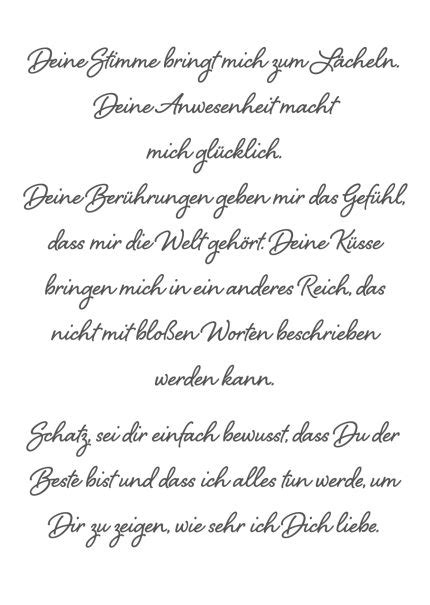 Deine Stimme bringt mich zum Lächeln.
Deine Anwesenheit macht
mich glücklich.
Deine Berührungen geben mir das Gefühl,
dass mir die Welt gehört. Deine Küsse
bringen mich in ein anderes Reich, das
nicht mit bloßen Worten beschrieben
werden kann.
Schatz, sei dir einfach bewusst, dass Du der
Beste bist und dass ich alles tun werde, um
Dir zu zeigen, wie sehr ich Dich liebe.